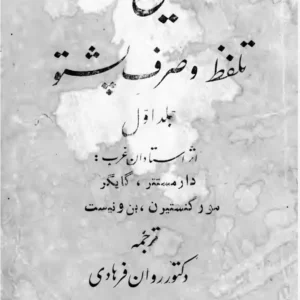 تلفظ و صرف پشتو
جلد اول
اثر استادان غرب:
دارمستتر، گایگر
مورگنستیرن، بن ونیست
ترجمه
دکتور روان فرهادی